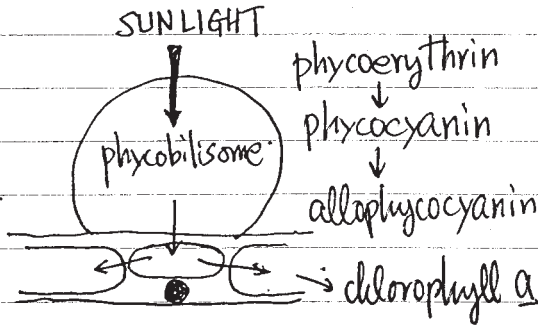 SUNLIGHT
phycobilisome
phycoerythrin
phycocyanin
allophycocyanin
chlorophyll a